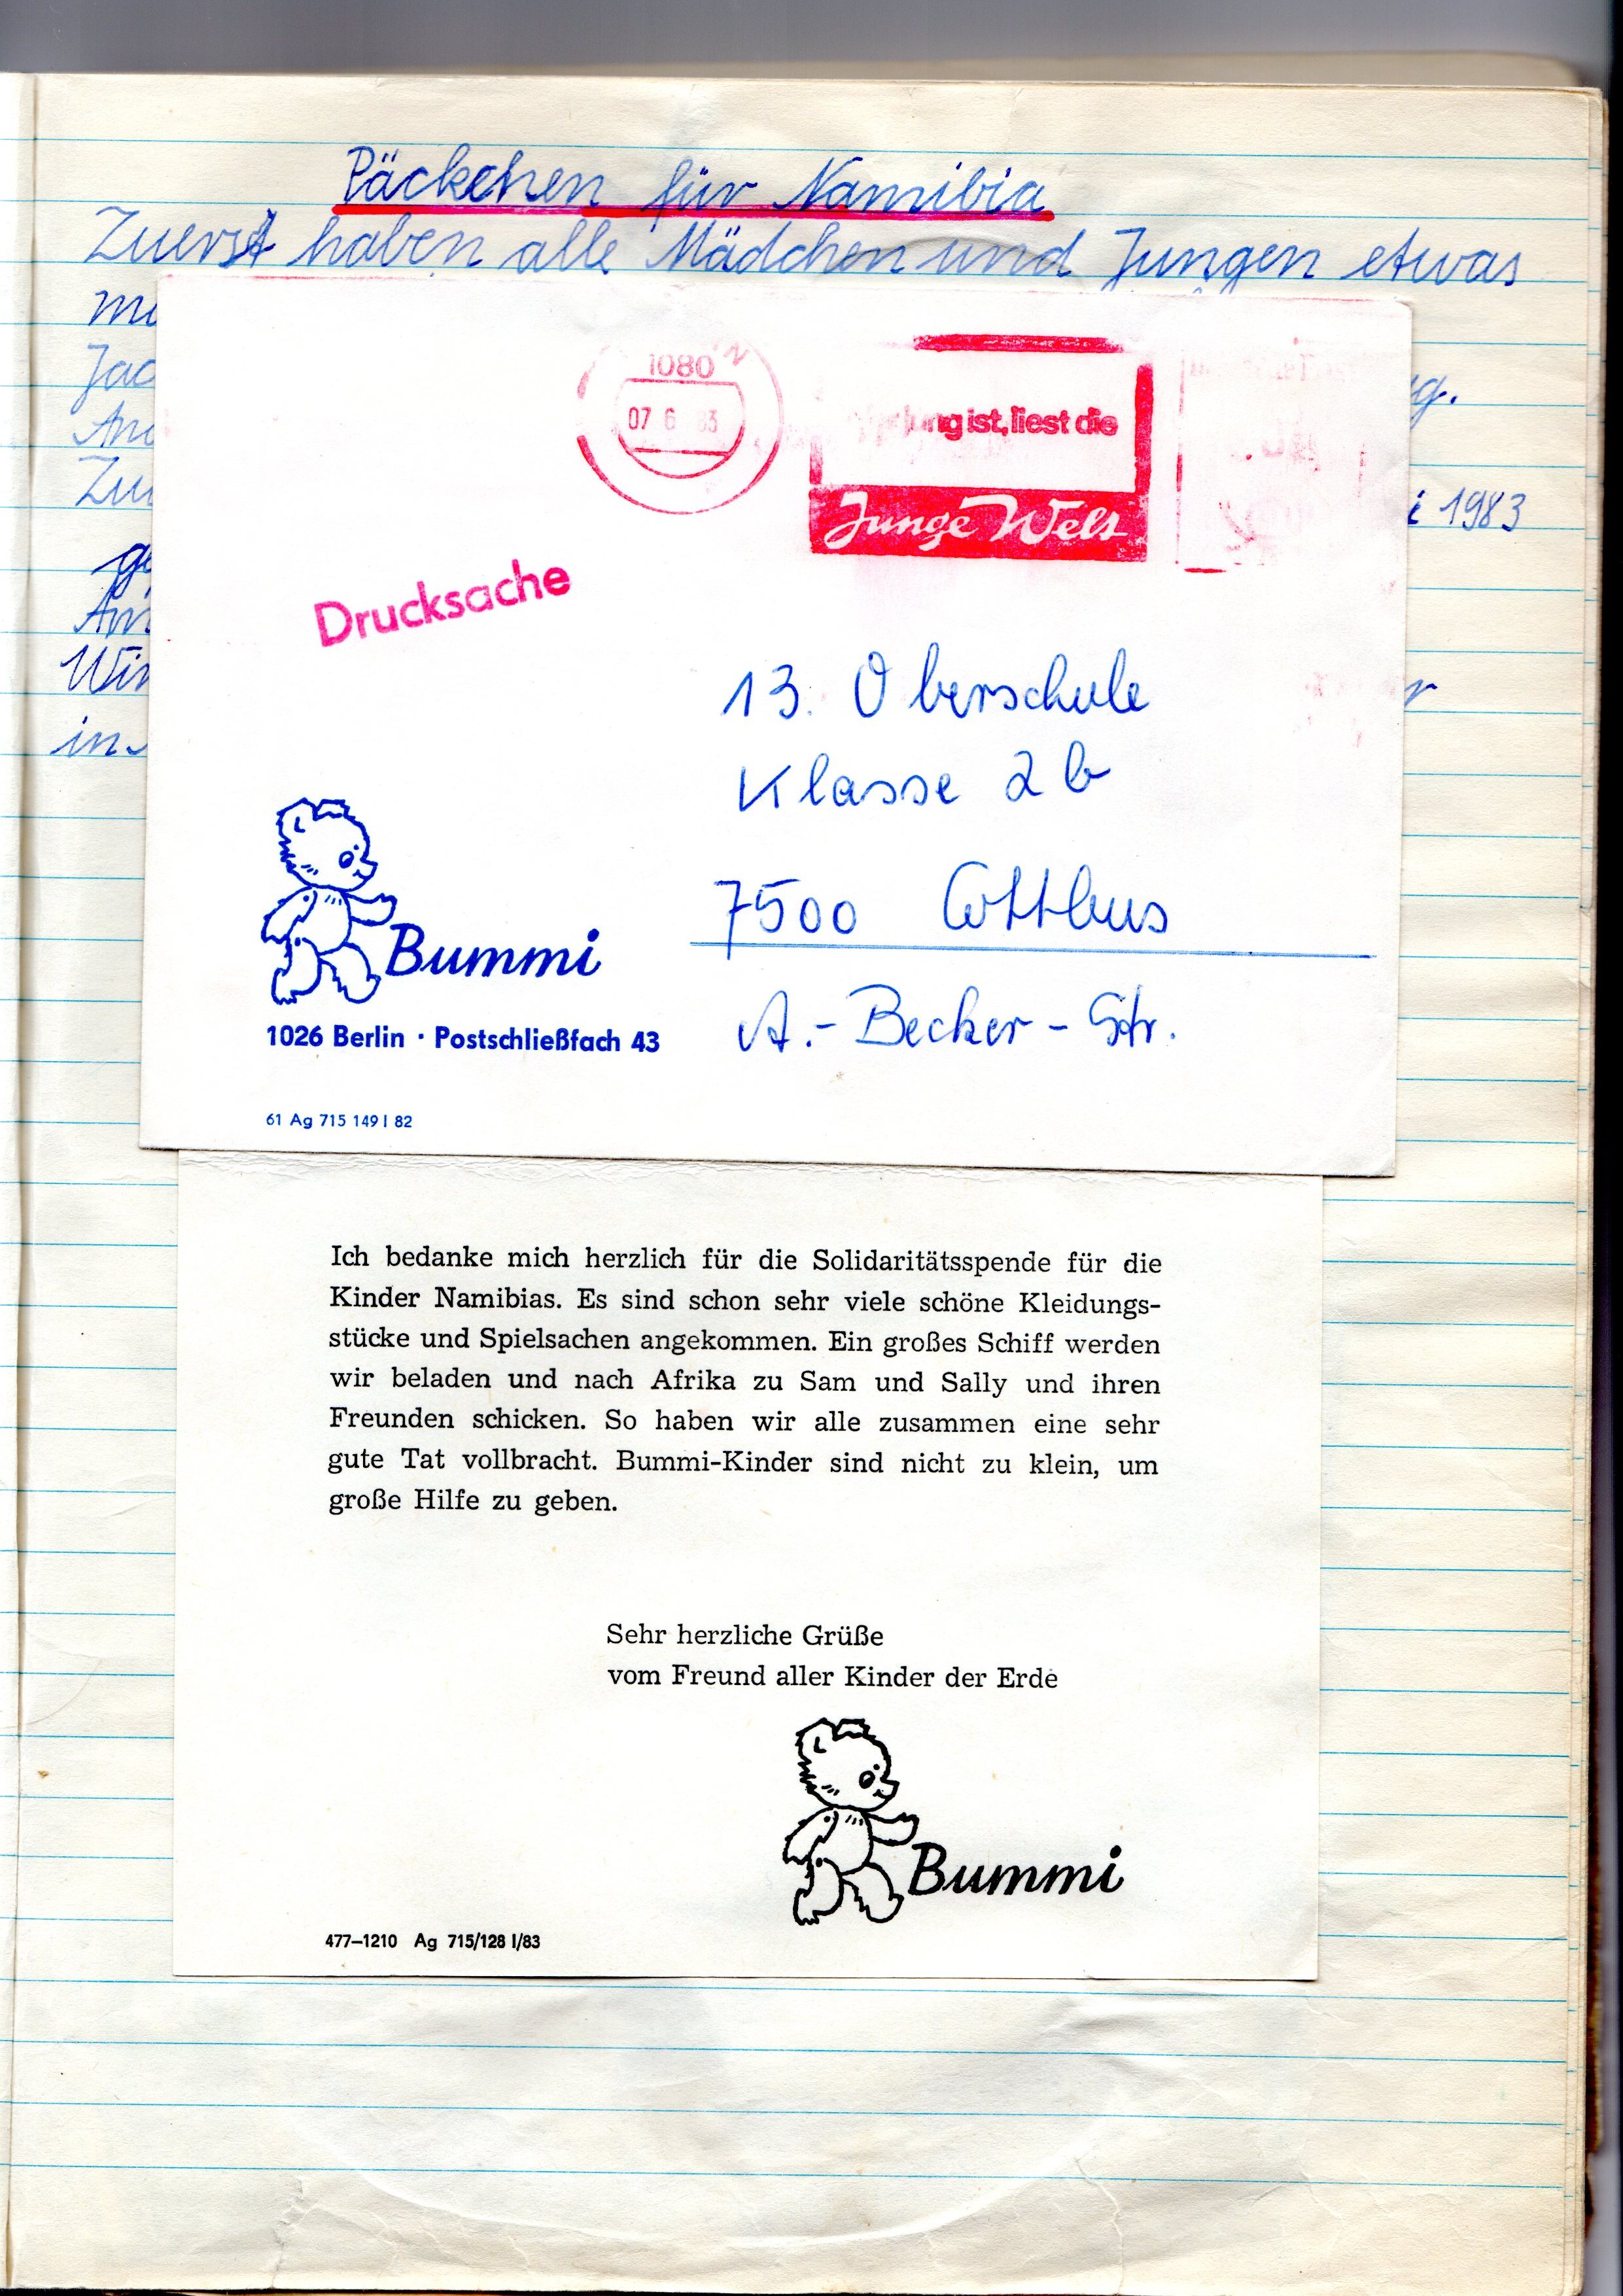 Päckchen für Namibia
Zuerst haben alle Mädchen und Jungen etwas
1983
1080
07 6 83
ist, liest die
Junge Welt
Drucksache
13. Oberschule
Klasse 2b
7500 Cottbus
A.-Becker-Str.
Bummi
1026 Berlin · Postschließfach 43
61 Ag 715 149 I 82
Ich bedanke mich herzlich für die Solidaritätsspende für die
Kinder Namibias. Es sind schon sehr viele schöne Kleidungs-
stücke und Spielsachen angekommen. Ein großes Schiff werden
wir beladen und nach Afrika zu Sam und Sally und ihren
Freunden schicken. So haben wir alle zusammen eine sehr
gute Tat vollbracht. Bummi-Kinder sind nicht zu klein, um
große Hilfe zu geben.
Sehr herzliche Grüße
vom Freund aller Kinder der Erde
Bummi
477–1210 Ag 715/128 I/83